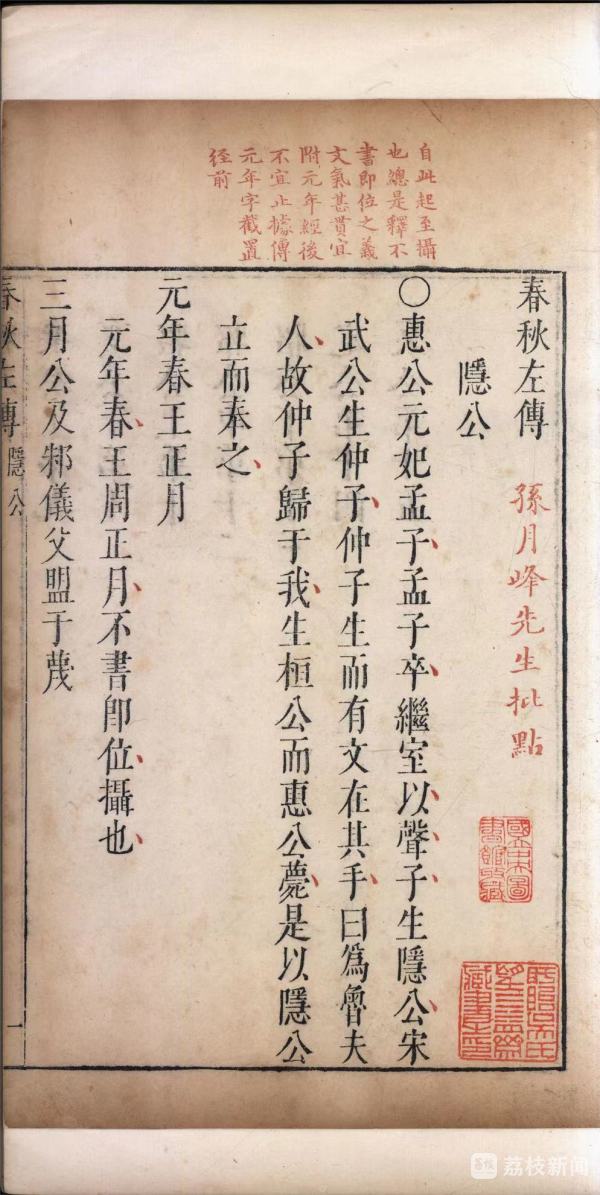 自此起至攝
也總是釋不
書即位之義
文氣甚貫宜
附元年經後
不宜止據傳
元年字截置
径前
春秋左傳 孫月峰先生批點
隱公
〇惠公元妃孟子孟子卒繼室以聲子生隱公宋
武公生仲子仲子生而有文在其手曰爲魯夫
人故仲子歸于我生桓公而惠公薨是以隱公
立而奉之
元年春王正月
元年春王周正月不書卽位攝也
三月公及邾儀父盟于蔑
春秋左傳 隱公 一
國立中央圖
書館收藏
荔枝新闻